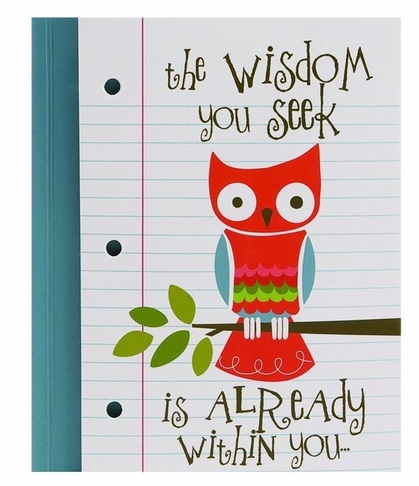 the WISDOM
you Seek
is ALReady
within you...